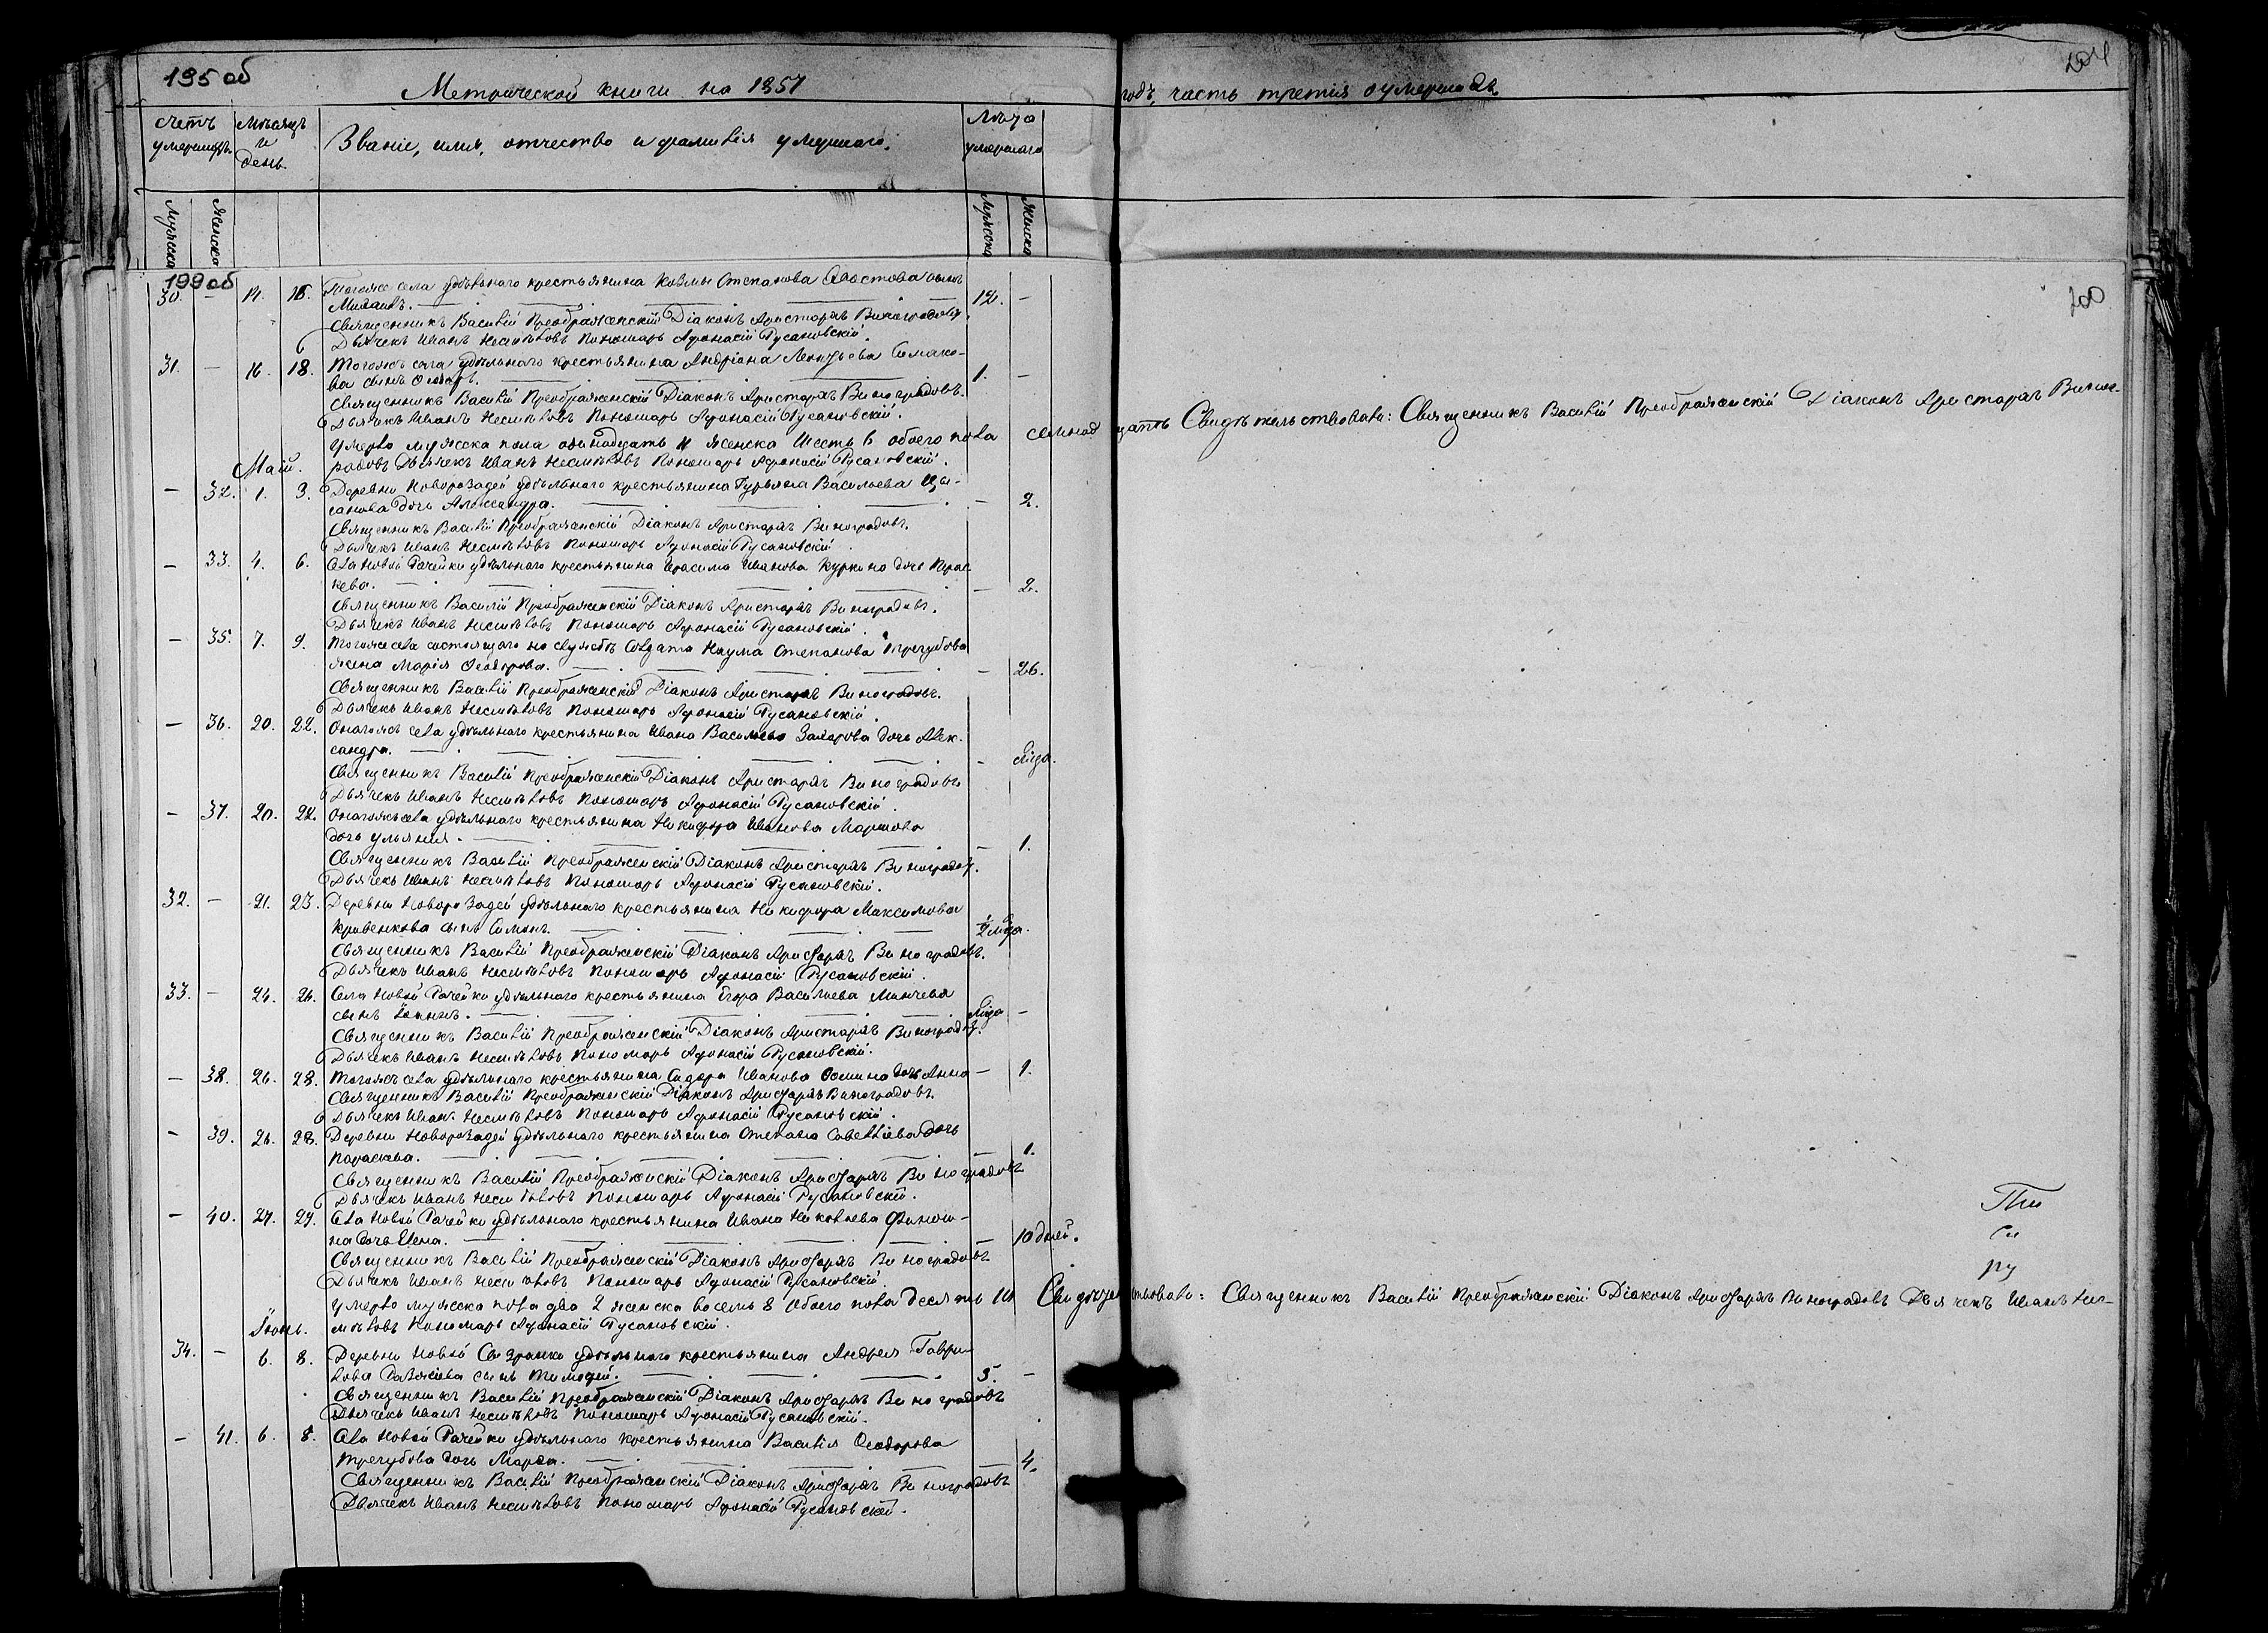 195 об
204
Метрической книги на 1851 годъ, часть третія о умершихъ.
Счетъ умершихъ.
Мѣсяцъ и день.
Званіе, имя, отчество и фамилія умершаго.
Лѣта умершаго
Мужска
Женска
Мужска
Женска
199 об
200
30. — 14. 16. Тогожъ села удѣльнаго крестьянина Козмы Степанова сынъ
Михаилъ. — 12. —
Священникъ Василій Преображенскій Діаконъ Аристархъ Виноградовъ.
Дьячекъ Иванъ Несмѣловъ Пономарь Афонасій Русановскій.
31. — 16. 18. Тогожъ села удѣльнаго крестьянина Андріана Леонтьева Симако-
ва сынъ — 1. —
Священникъ Василій Преображенскій Діаконъ Аристархъ Виноградовъ.
Дьячекъ Иванъ Несмѣловъ Пономарь Афонасій Русановскій.
Умерло мужска пола одинадцать 11 женска шесть 6 обоего пола семнадцать Свидѣтельствовали: Священникъ Василій Преображенскій Діаконъ Аристархъ Виног-
радовъ Дьячекъ Иванъ Несмѣловъ Пономарь Афонасій Русановскій.
Маій.
— 32. 1. 3. Деревни Новорозадей удѣльнаго крестьянина Гурьяна Васильева Цы-
ганова дочь Александра. — — 2.
Священникъ Василій Преображенскій Діаконъ Аристархъ Виноградовъ.
Дьячекъ Иванъ Несмѣловъ Пономарь Афонасій Русановскій
— 33. 4. 6. Села Новой Рачейки удѣльнаго крестьянина Герасима Иванова Куркина дочь Прас-
кева. — — 2.
Священникъ Василій Преображенскій Діаконъ Аристархъ Виноградовъ.
Дьячекъ Иванъ Несмѣловъ Пономарь Афонасій Русановскій.
— 35. 7. 9. Тогожъ села состоящаго на службѣ Солдата Наума Степанова Трегубова
жена Марія Ѳеодорова. — — 26.
Священникъ Василій Преображенскій Діаконъ Аристархъ Виноградовъ.
Дьячекъ Иванъ Несмѣловъ Пономарь Афонасій Русановскій.
— 36. 20. 22. Онагожъ села удѣльнаго крестьянина Ивана Васильева Захарова дочь Алек-
сандра. — — ½ года.
Священникъ Василій Преображенскій Діаконъ Аристархъ Виноградовъ
Дьячекъ Иванъ Несмѣловъ Пономарь Афонасій Русановскій.
— 37. 20. 22. Онагожъ села удѣльнаго крестьянина Никифора Иванова Маршова
дочь Ульянія. — — 1.
Священникъ Василій Преображенскій Діаконъ Аристархъ Виноградовъ.
Дьячекъ Иванъ Несмѣловъ Пономарь Афонасій Русановскій.
32. — 21. 23. Деревни Новорозадей удѣльнаго крестьянина Никифора Максимова
Кривенкова сынъ Симонъ. — ½ года.
Священникъ Василій Преображенскій Діаконъ Аристархъ Виноградовъ.
Дьячекъ Иванъ Несмѣловъ Пономарь Афонасій Русановскій.
33. — 24. 26. Села Новой Рачейки удѣльнаго крестьянина Егора Васильева Минчева
сынъ Іоаннъ. — ½ года —
Священникъ Василій Преображенскій Діаконъ Аристархъ Виноградовъ.
Дьячекъ Иванъ Несмѣловъ Пономарь Афонасій Русановскій.
— 38. 26. 28. Тогожъ села удѣльнаго крестьянина Сидора Иванова Осипина дочь Анна — 1.
Священникъ Василій Преображенскій Діаконъ Аристархъ Виноградовъ.
Дьячекъ Иванъ Несмѣловъ Пономарь Афонасій Русановскій.
— 39. 26. 28. Деревни Новорозадей удѣльнаго крестьянина Степана Савельева дочь
Параскева. — — 1.
Священникъ Василій Преображенскій Діаконъ Аристархъ Виноградовъ
Дьячекъ Иванъ Несмѣловъ Пономарь Афонасій Русановскій.
— 40. 27. 29. Села Новой Рачейки удѣльнаго крестьянина Ивана Николаева Финоги-
на дочь Елена. — — 10 дней.
Священникъ Василій Преображенскій Діаконъ Аристархъ Виноградовъ
Дьячекъ Иванъ Несмѣловъ Пономарь Афонасій Русановскій.
Умерло мужска пола два 2 женска восемь 8 обоего пола десять 10 Свидѣтельствовали: Священникъ Василій Преображенскій Діаконъ Аристархъ Виноградовъ Дьячекъ Иванъ Нес-
мѣловъ Пономарь Афонасій Русановскій.
Іюнь.
34. — 6. 8. Деревни Новой Сызранки удѣльнаго крестьянина Андрея Гаври-
лова сынъ Тимофей. — 3. —
Священникъ Василій Преображенскій Діаконъ Аристархъ Виноградовъ
Дьячекъ Иванъ Несмѣловъ Пономарь Афонасій Русановскій.
— 41. 6. 8. Села Новой Рачейки удѣльнаго крестьянина Василія Ѳеодорова
Трегубова дочь Марѳа. — — 4.
Священникъ Василій Преображенскій Діаконъ Аристархъ Виноградовъ
Дьячекъ Иванъ Несмѣловъ Пономарь Афонасій Русановскій.
ру